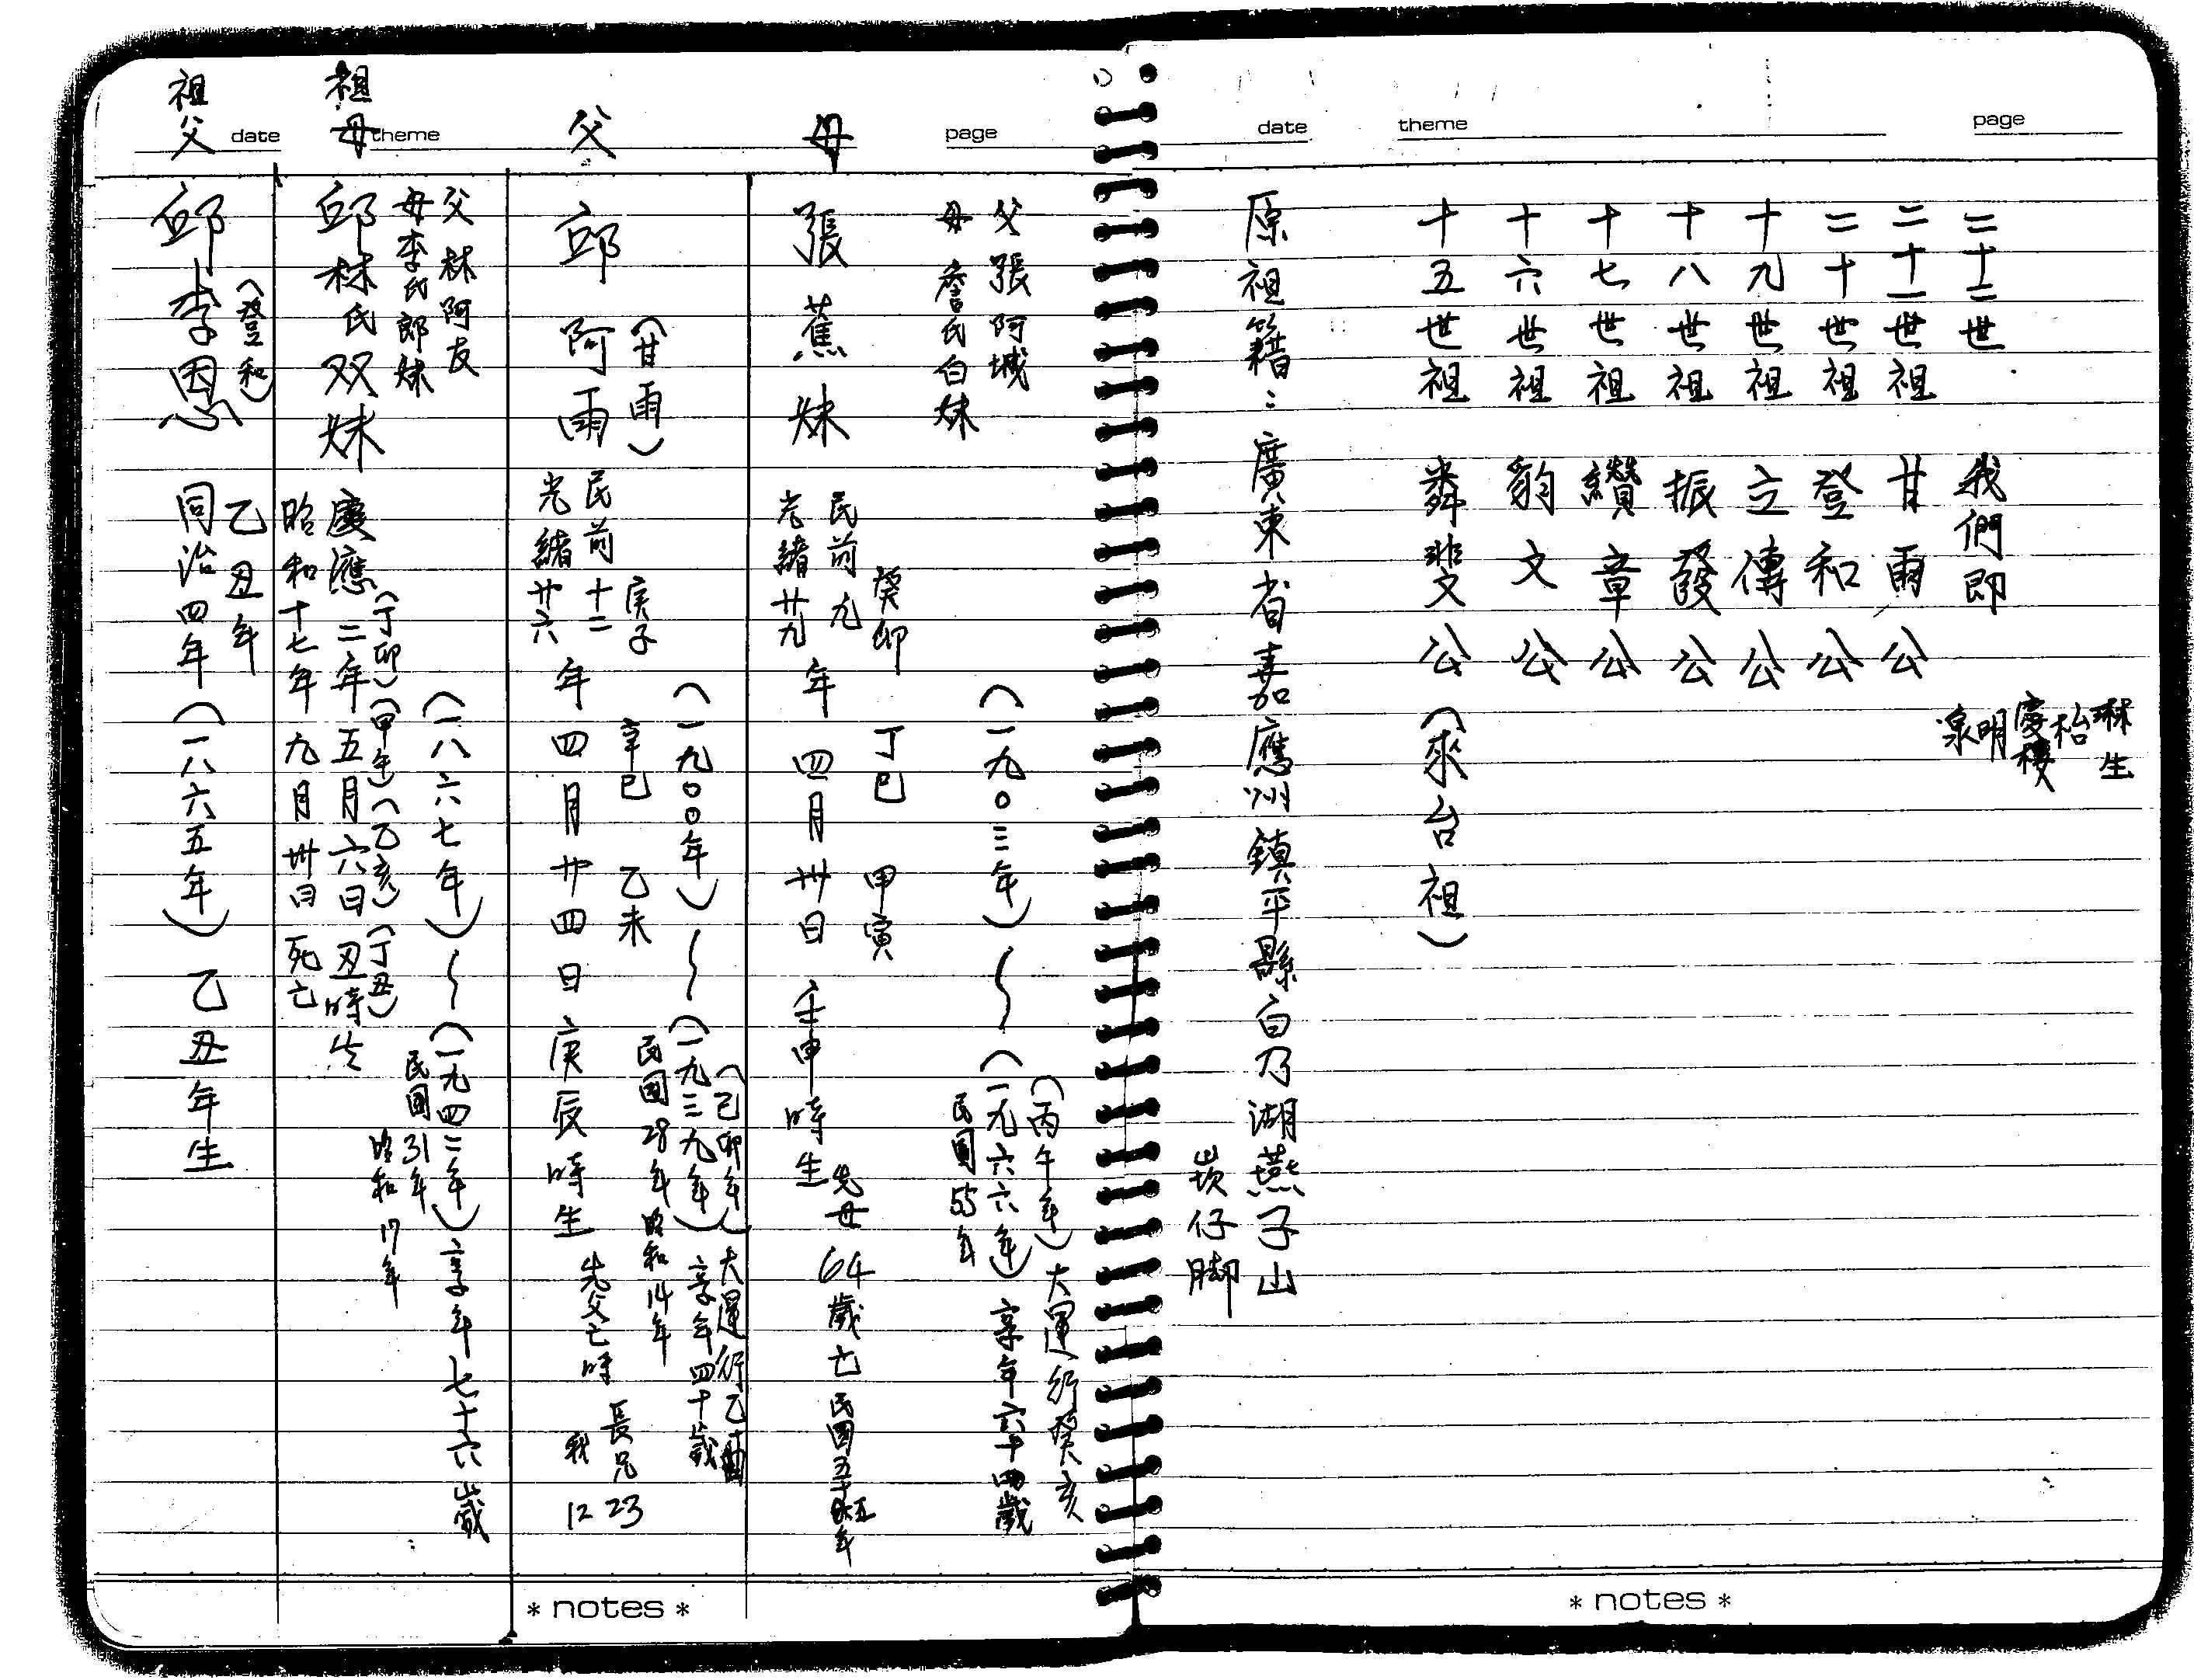 date theme page
祖父
邱李恩
(登和)
乙丑年
同治四年(一八六五年) 乙丑年生
祖母
父 林阿友
母 李氏郎妹
邱林氏双妹
慶應二年五月六日丑時生
(丁卯)(甲午)(乙亥)(丁丑)
昭和十七年九月卅日死亡
(一八六七年)~(一九四二年)享年七十六歲
民國31年
昭和17年
父
邱阿雨
(甘雨)
民前十二 庚子
光緒廿六年四月廿四日庚辰時生
辛巳 乙未
(一九〇〇年)~(一九三九年)享年四十歲
(己卯年)大運行乙
民國28年 昭和14年
先父亡時
長兄23
我12
母
父 張阿城
母 詹氏白妹
張蕉妹
民前九 癸卯
光緒廿九年四月卅日壬申時生
丁巳 甲寅
(一九〇三年)~(一九六六年)享年六十四歲
(丙午年)大運行癸亥
民國55年
先母64歲亡民國五十五年
* notes *
date theme page
二十二世 我們即
琳生
枱
慶樓
明
泉
二十一世祖 甘雨公
二十世祖 登和公
十九世祖 立傳公
十八世祖 振發公
十七世祖 纘章公
十六世祖 豹文公
十五世祖 粦斐公(來台祖)
原祖籍:廣東省嘉應州鎮平縣白乃湖燕子山
崁仔脚
* notes *